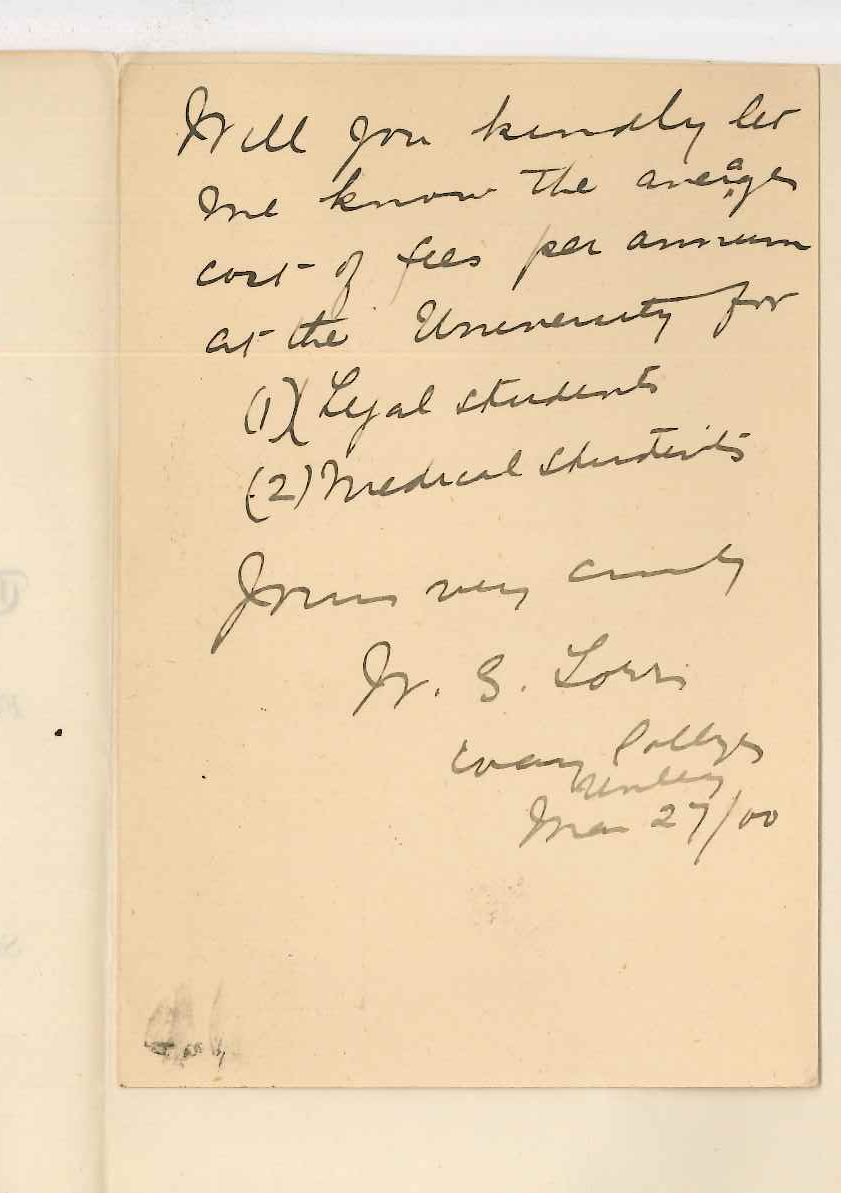 Will you kindly let
me know the average
cost of fees per annum
at the University for
(1) Legal students
(2) Medical students
Yours very
W. G.
College
Unley
Mar 27/00